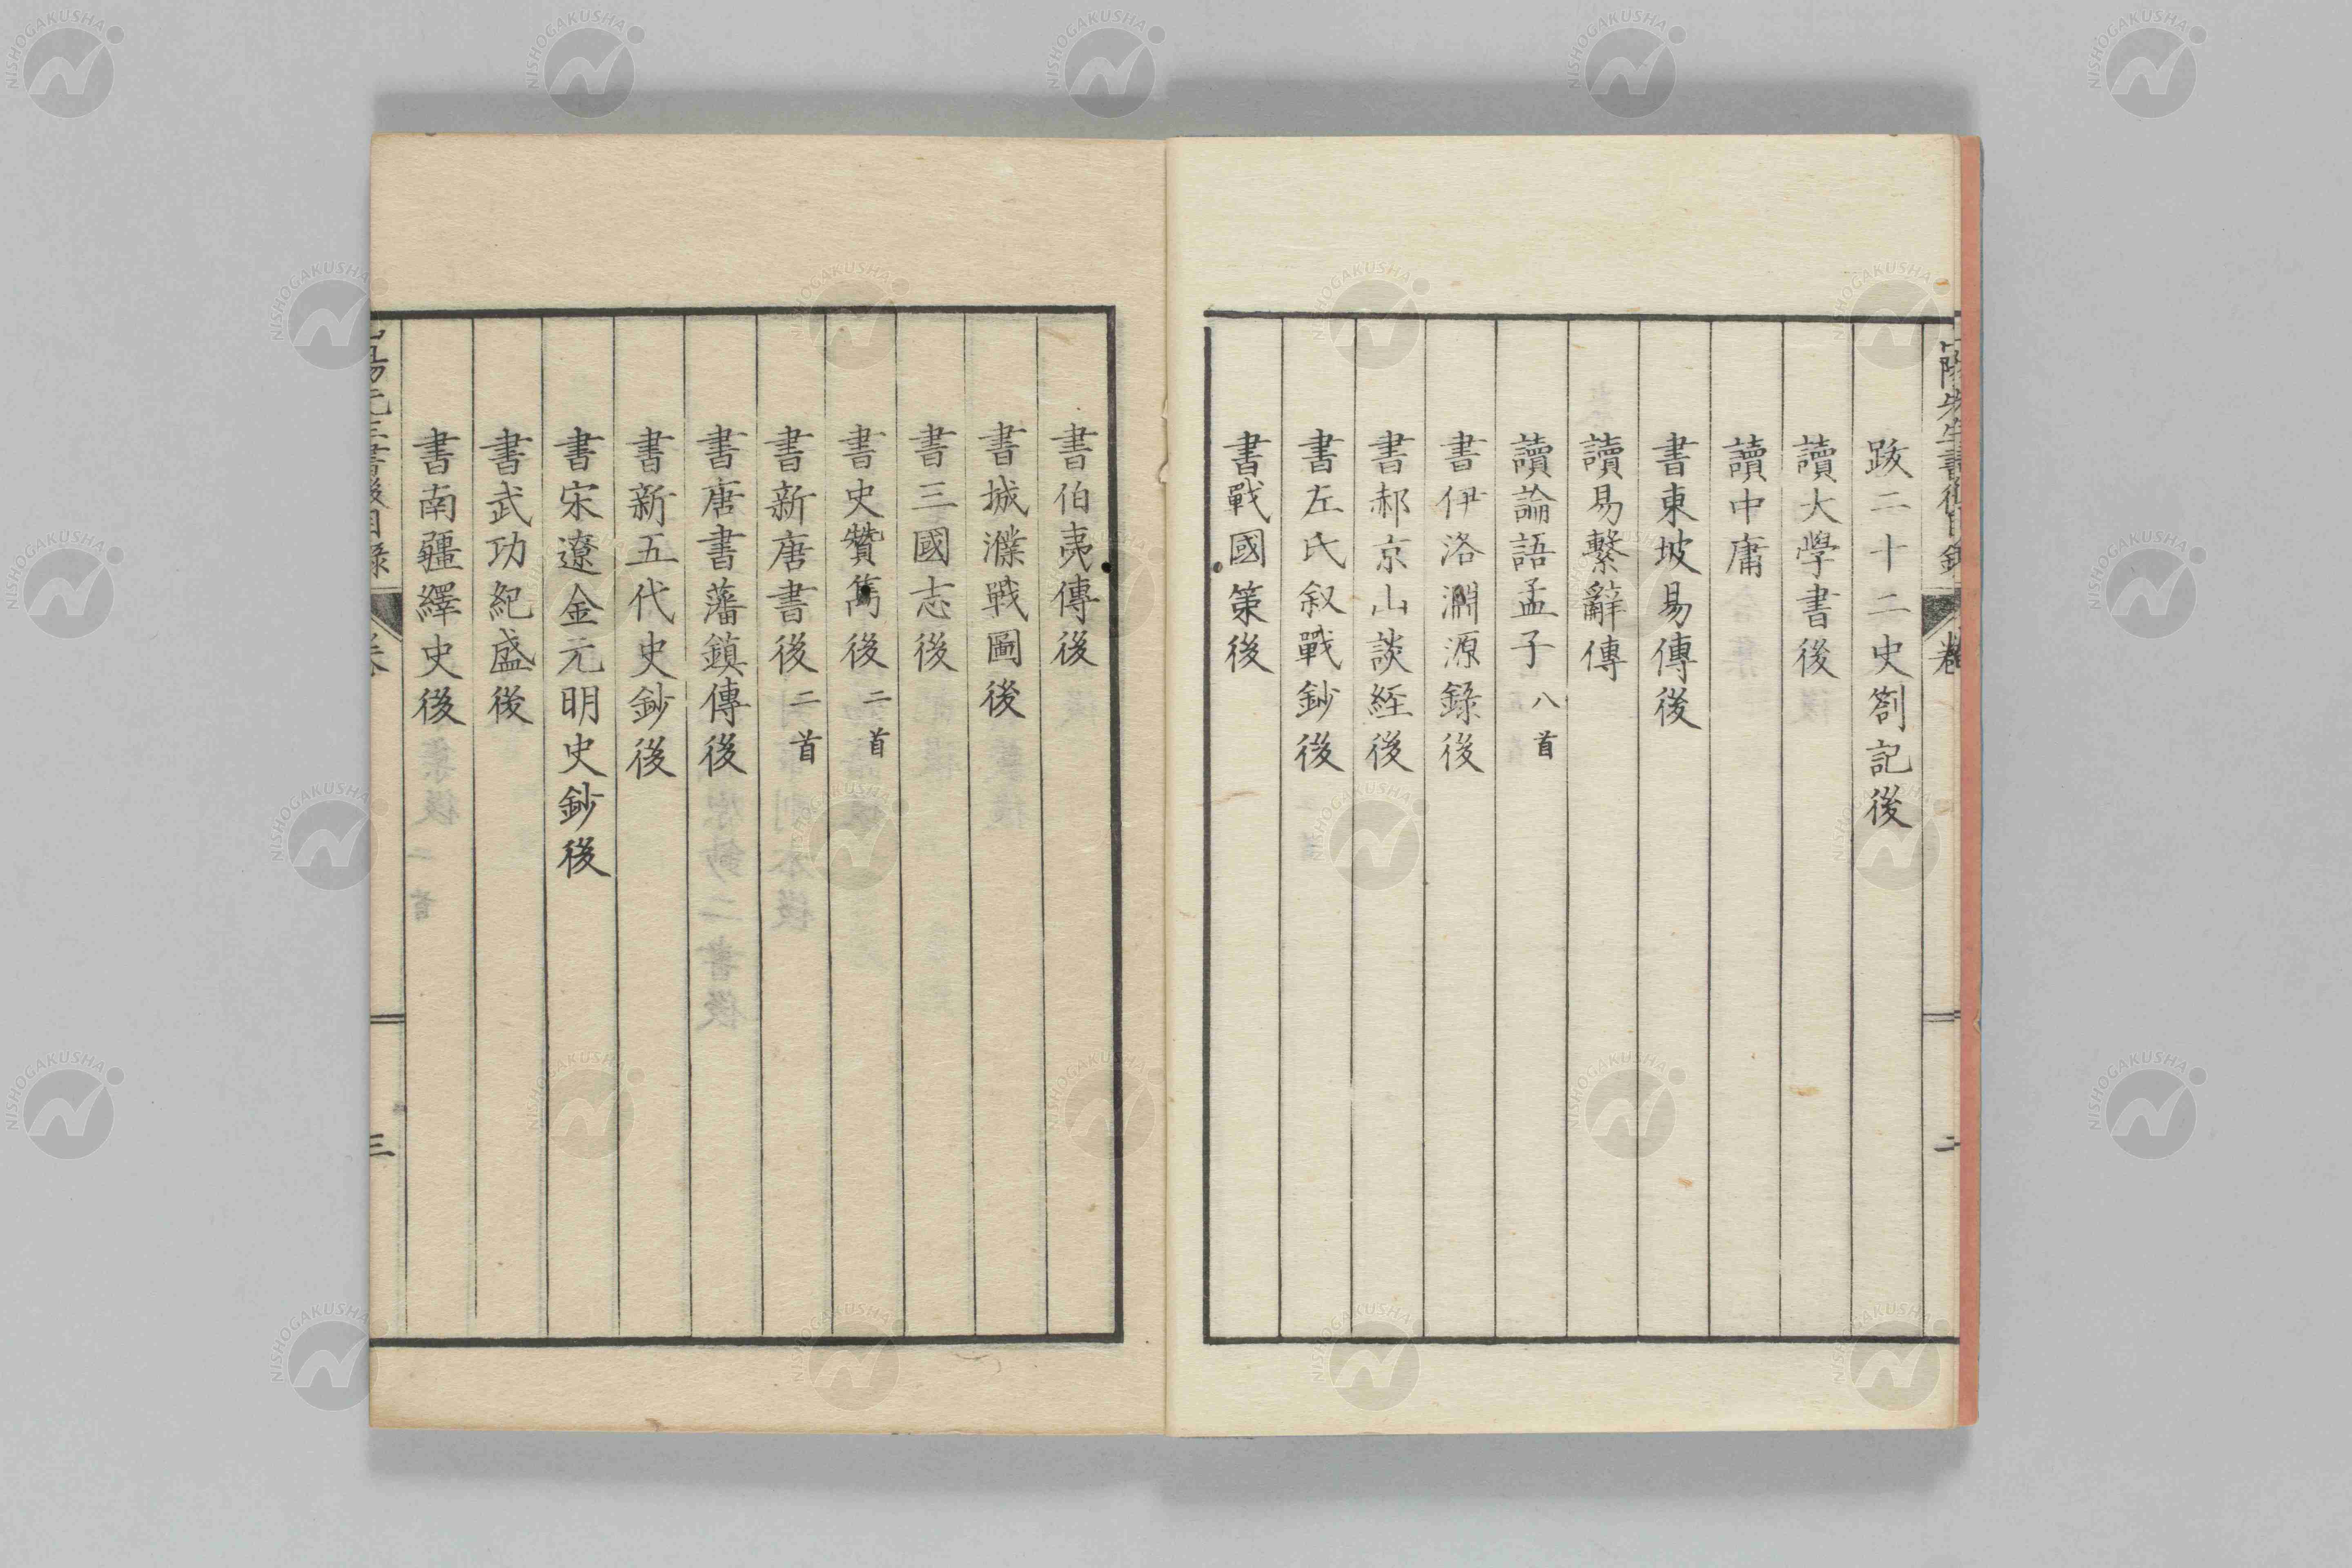 跋二十二史劄記後
讀大學書後
讀中庸
書東坡易傳後
讀易繫辭傳
讀論語孟子 八首
書伊洛淵源錄後
書郝京山談経後
書左氏叙戰鈔後
書戰國策後
書伯夷傳後
書城濮戰圖後
書三國志後
書史贊雋後 二首
書新唐書後 二首
書唐書藩鎮傳後
書新五代史鈔後
書宋遼金元明史鈔後
書武功紀盛後
書南疆繹史後
三
NISHOGAKUSHA